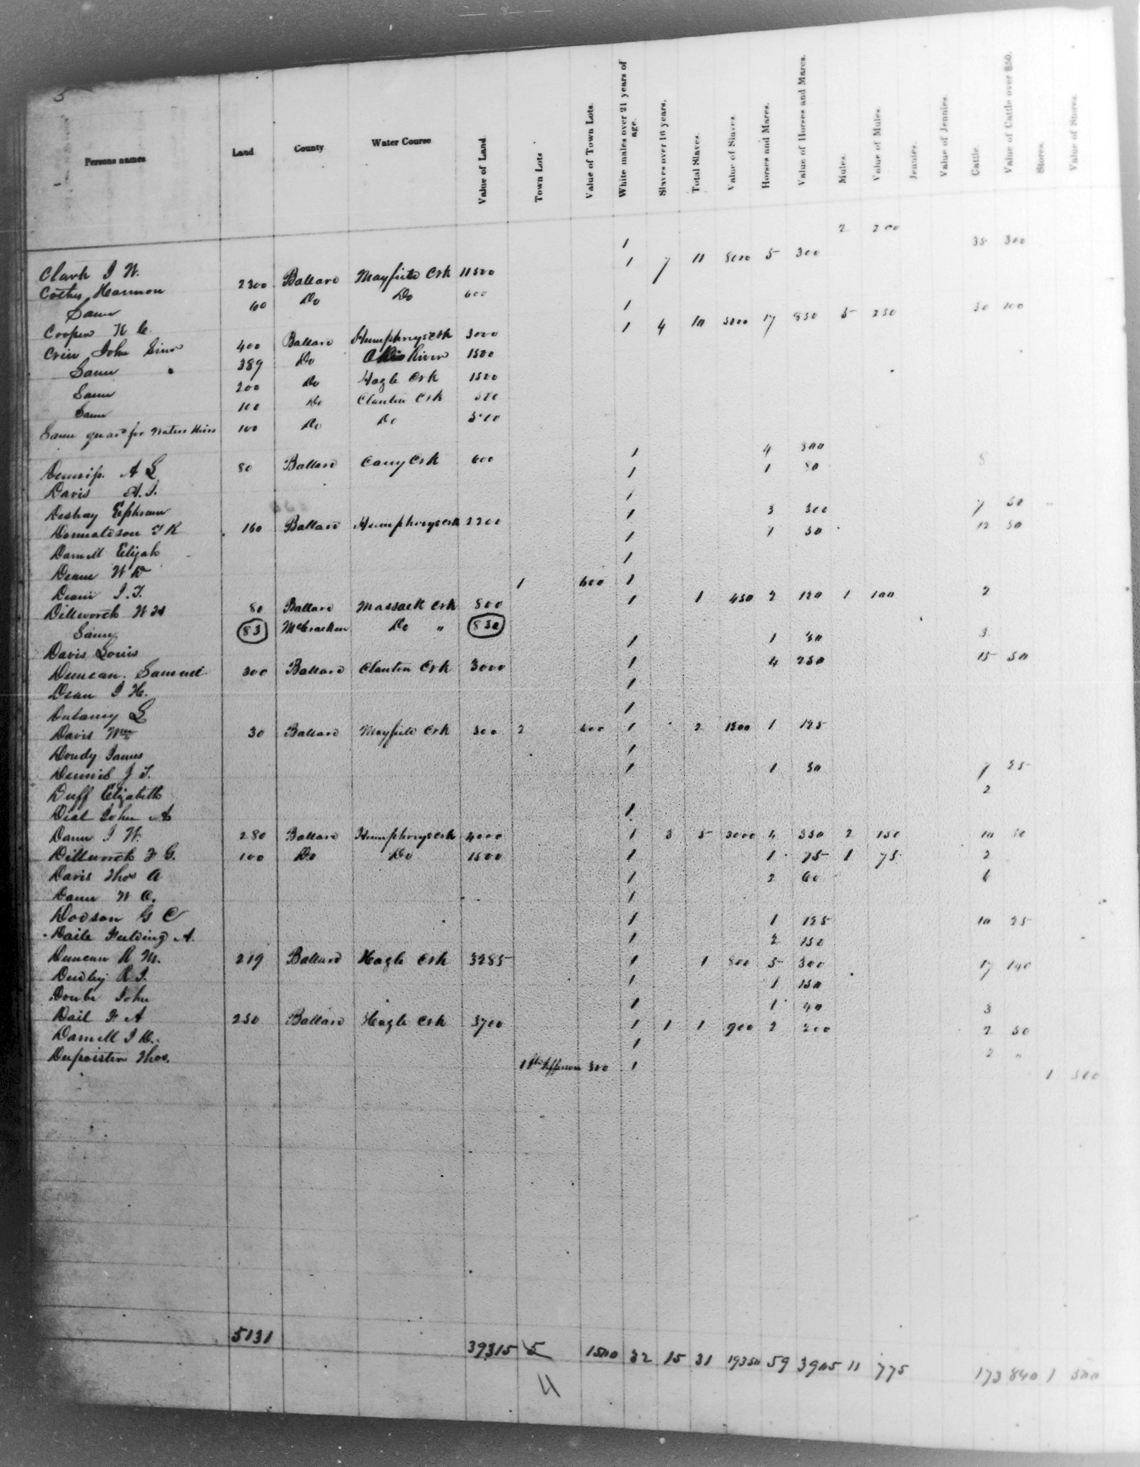 Persons names Land County Water Course Value of Land Town Lots Value of Town Lots. White males over 21 years of age. Slaves over 16 years. Total Slaves. Value of Slaves. Horses and Mares. Value of Horses and Mares. Mules. Value of Mules. Jennies. Value of Jennies. Cattle. Value of Cattle over $50. Stores. Value of Stores.
Clark J W. 1 2 200
2300 Ballard Mayfield Crk 11500 1 7 11 5000 5 300 35 300
Same 60 Do Do 600
Cooper 1
John 400 Ballard Humphreys Crk 3000 1 4 10 5000 17 850 5 250 30 100
Same 389 Do Ohio River 1500
Same 200 Do Hazle Crk 1500
Same 100 Do Clanton Crk 500
Same 100 Do Do 500
80 Ballard Cany Crk 600 1 4 300
Davis A. J. 1 1 80
Ephram 1
Donnaldson 160 Ballard Humphreys Crk 2200 1 3 300 7 50
Darnell Elijah 1 1 50 12 50
Deane W 1
Dean J. T. 1 600 1
Dillworth W H 80 Ballard Massack Crk 800 1 1 450 2 120 1 100 2
Same 83 McCracken Do " 830
Davis Louis 1 1 50 3
Duncan Samuel 300 Ballard Clanton Crk 3000 1 4 250 15 50
Dean J H. 1
Dulaney L 1
Davis Wm 30 Ballard Mayfield Crk 300 2 600 1 2 1200 1 125
Doudy James 1
Dennis J T. 1 1 50 7 25
Duff Elizabeth 2
Dial John 1
Dann J W. 280 Ballard Humphreys Crk 4000 1 3 5 3000 4 350 2 150 10 50
Dillworth F G. 100 Do Do 1500 1 1 75 1 75 2
Davis Thos A 1 2 60 6
Dann W A. 1
Dodson G C 1 1 125 10 25
Fielding A. 1 2 150
Duncan R M. 219 Ballard Hazle Crk 3285 1 1 800 5 300 17 140
R J. 1 1 150
John 1 1 40 3
Dail F A 250 Ballard Hazle Crk 3700 1 1 1 900 2 200 2 50
Darnell J 1 2 "
Thos. 1 300 1 1 500
5131 39315 5 1500 32 15 31 19350 59 3905 11 775 173 840 1 500
11